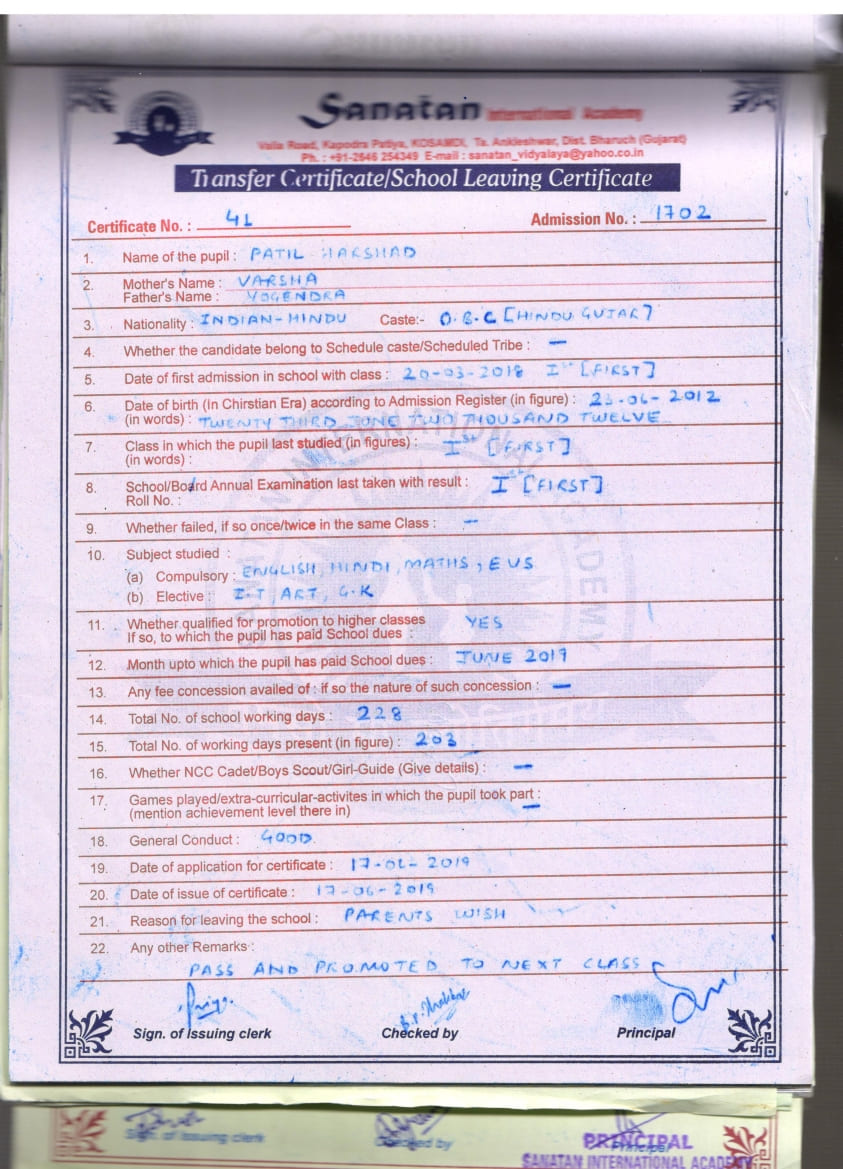 Sanatan International Academy
Valia Road, Kapodra Patiya, KOSAMDI, Ta. Ankleshwar, Dist. Bharuch (Gujarat)
Ph. : +91-2646 254349 E-mail : sanatan_vidyalaya@yahoo.co.in
Transfer Certificate/School Leaving Certificate
Certificate No. : 41 Admission No. : 1702
1. Name of the pupil : PATIL HARSHAD
2. Mother's Name : VARSHA
Father's Name : YOGENDRA
3. Nationality : INDIAN-HINDU Caste:- O.B.C [HINDU GUJAR]
4. Whether the candidate belong to Schedule caste/Scheduled Tribe : —
5. Date of first admission in school with class : 20-03-2018 Ist [FIRST]
6. Date of birth (In Chirstian Era) according to Admission Register (in figure) : 23-06-2012
(in words) : TWENTY THIRD JUNE TWO THOUSAND TWELVE
7. Class in which the pupil last studied (in figures) : Ist [FIRST]
(in words) :
8. School/Board Annual Examination last taken with result : Ist [FIRST]
Roll No. :
9. Whether failed, if so once/twice in the same Class : —
10. Subject studied :
(a) Compulsory : ENGLISH, HINDI, MATHS, EVS
(b) Elective : I.T, ART, G.K
11. Whether qualified for promotion to higher classes YES
If so, to which the pupil has paid School dues :
12. Month upto which the pupil has paid School dues : JUNE 2019
13. Any fee concession availed of : if so the nature of such concession : —
14. Total No. of school working days : 228
15. Total No. of working days present (in figure) : 203
16. Whether NCC Cadet/Boys Scout/Girl-Guide (Give details) : —
17. Games played/extra-curricular-activites in which the pupil took part : —
(mention achievement level there in)
18. General Conduct : GOOD.
19. Date of application for certificate : 17-06-2019
20. Date of issue of certificate : 17-06-2019
21. Reason for leaving the school : PARENTS WISH
22. Any other Remarks :
PASS AND PROMOTED TO NEXT CLASS
Sign. of Issuing clerk Checked by Principal
Sign. of Issuing clerk Checked by Principal
PRINCIPAL
SANATAN INTERNATIONAL ACADEMY